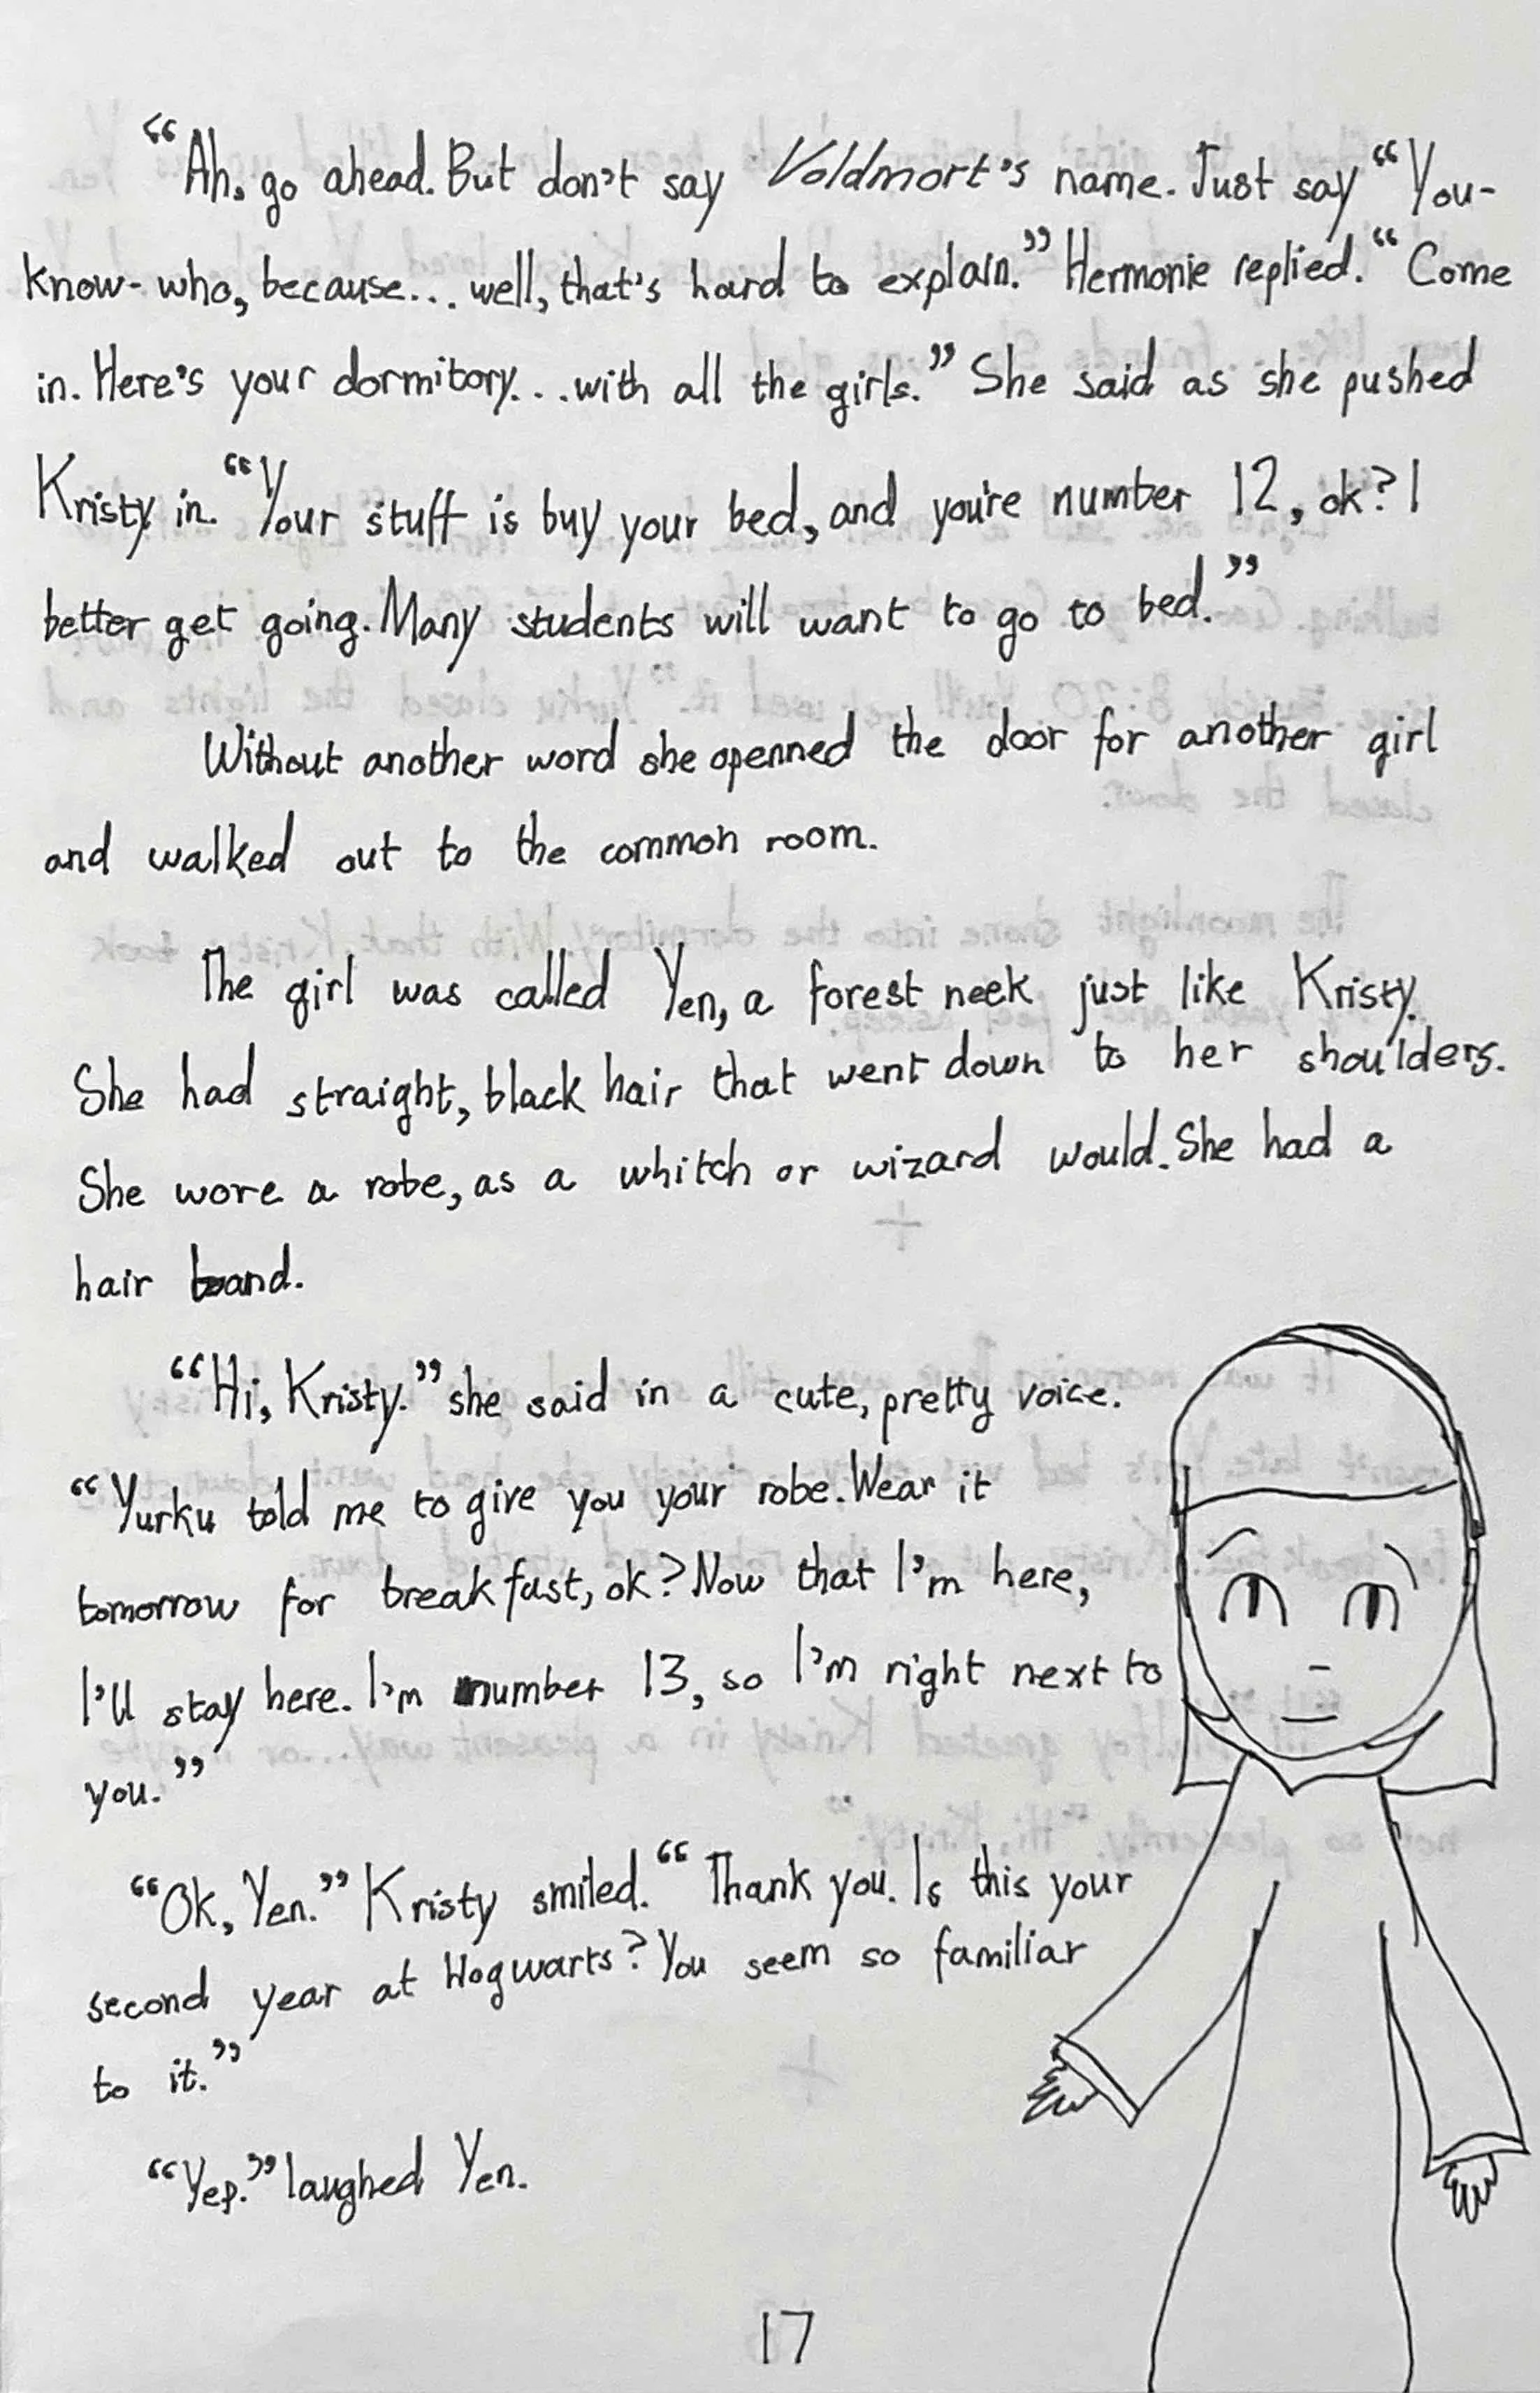 “Ah, go ahead. But don't say Voldmort's name. Just say “You-
know- who, because... well, that's hard to explain.” Hermonie replied. “Come
in. Here's your dormitory...with all the girls.” She said as she pushed
Kristy in. “Your stuff is buy your bed, and you're number 12, ok? I
better get going. Many students will want to go to bed.”
Without another word she openned the door for another girl
and walked out to the common room.
The girl was called Yen, a forest neek just like Kristy.
She had straight, black hair that went down to her shoulders.
She wore a robe, as a whitch or wizard would. She had a
hair band.
“Hi, Kristy.” she said in a cute, pretty voice.
“Yurku told me to give you your robe. Wear it
tomorrow for breakfast, ok? Now that I'm here,
I'll stay here. I'm number 13, so I'm right next to
you.”
“Ok, Yen.” Kristy smiled. “Thank you. Is this your
second year at Hogwarts? You seem so familiar
to it.”
“Yep.” laughed Yen.
17